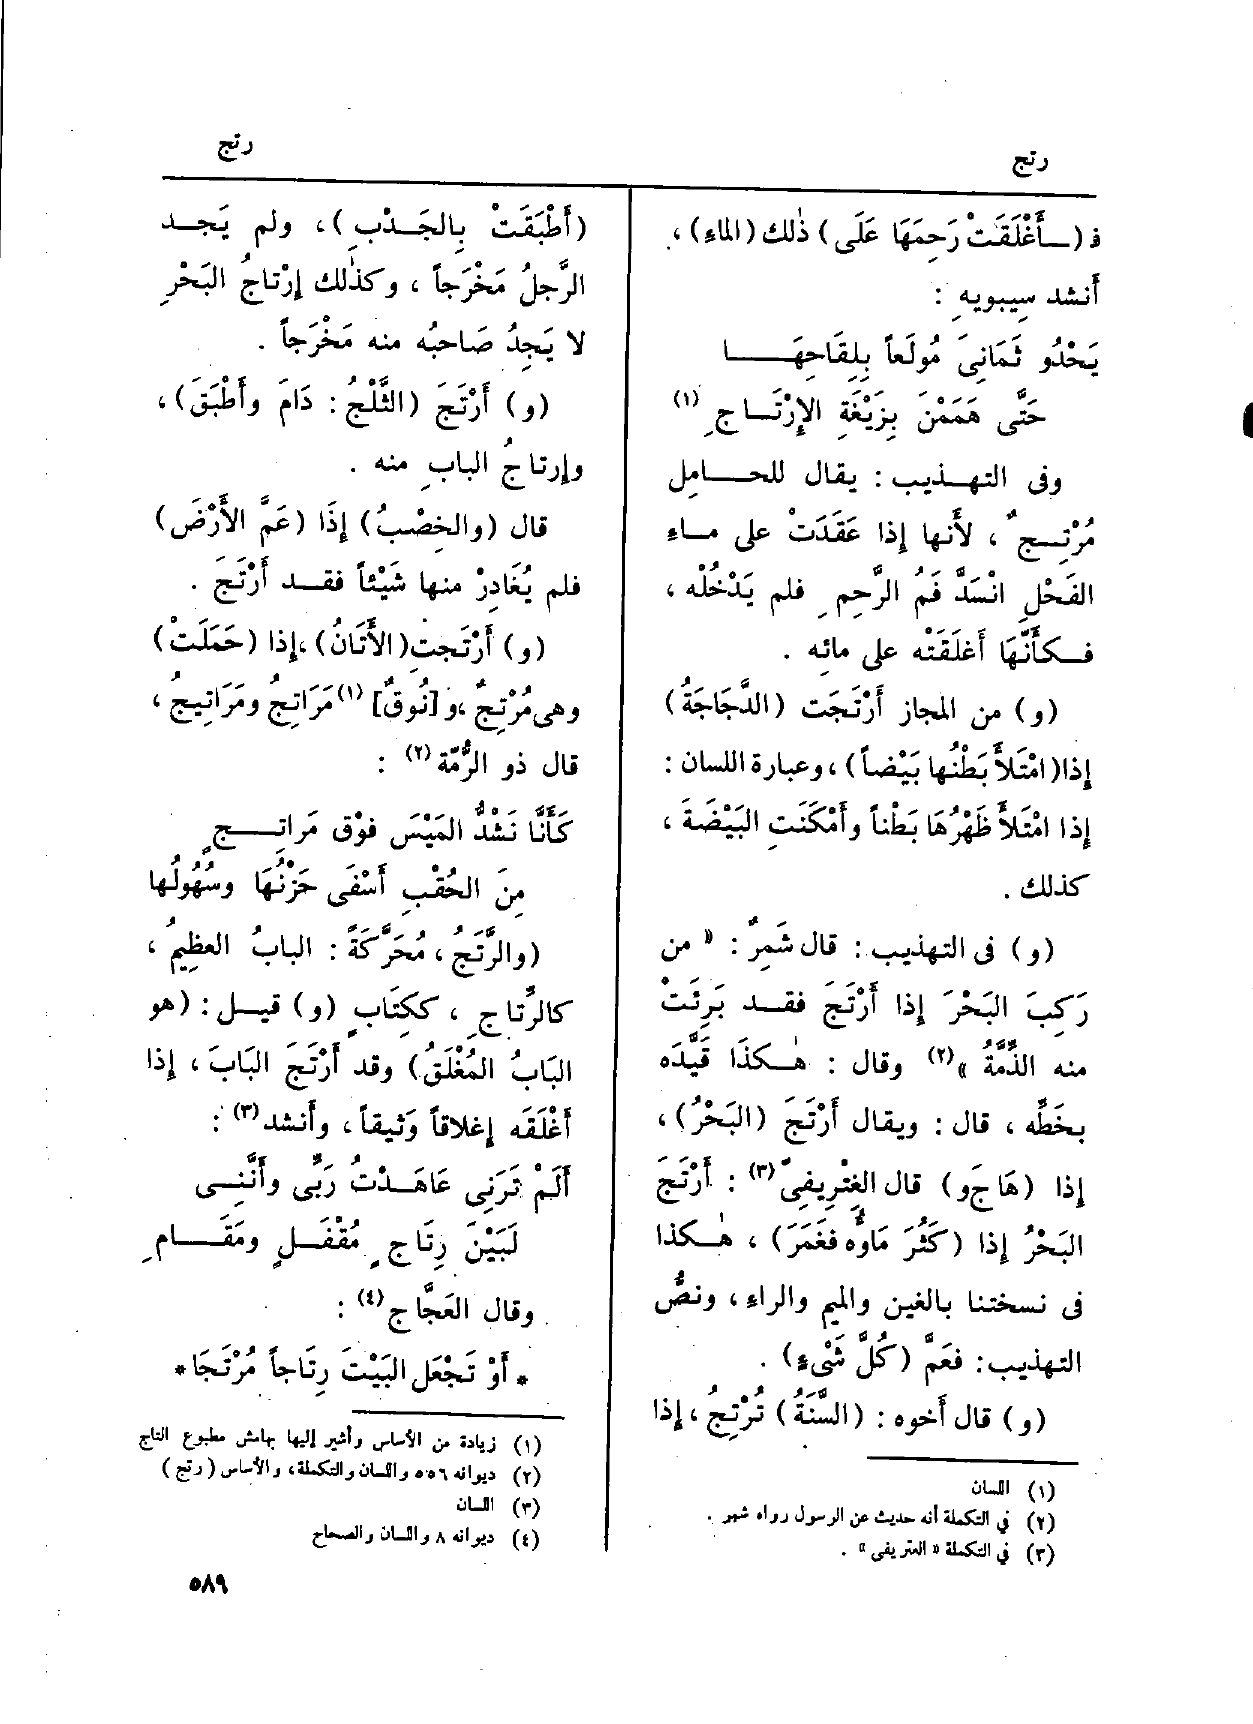 رتج
رتج
فـ(ـأَغْلَقَتْ رَحِمَهَا عَلَى) ذٰلك (الماءِ)،
أَنشد سِيبويهِ :
يَحْدُو ثَمَانِىَ مُولَعاً بِلِقَاحِهَـــا
حَتَّى هَمَمْنَ بِزَيْغَةِ الإِرْتَــاجِ (١)
وفى التهـذيب : يقال للحــامِل
مُرْتِــجٌ ، لأَنها إِذا عَقَدَتْ على مــاءِ
الفَحْلِ انْسَدَّ فَمُ الرَّحِمِ فلم يَدْخُلْه ،
فــكأَنَّهَا أَغلَقَتْه على مائِه .
(و) من المجاز أَرْتَجَت (الدَّجَاجَةُ)
إِذا (امْتَلأَ بَطْنُها بَيْضاً) ، وعبارة اللسان :
إِذا امْتَلأَ ظَهْرُهَا بَطْناً وأَمْكَنَتِ البَيْضَةَ ،
كذلك .
(و) فى التهذيب : قال شَمِرٌ : « من
رَكِبَ البَحْرَ إِذا أَرْتَجَ فقــد بَرِئَتْ
منه الذِّمَّةُ »(٢) وقال : هٰــكذَا قَيَّدَه
بخَطِّه ، قال : ويقال أَرْتَجَ (البَحْرُ) ،
إِذا (هَاجَ و) قال الغِتْرِيفِىّ (٣) : أَرْتَجَ
البَحْرُ إِذا (كَثُرَ مَاؤُه فغَمَرَ) ، هٰــكذا
فى نسختنا بالغين والميم والراءِ ، ونصُّ
التهذيب : فعَمَّ (كُلَّ شَىْءٍ) .
(و) قال أَخوه : (السَّنَةُ) تُرْتِجُ ، إِذا
(١) اللسان
(٢) في التكملة أنه حديث عن الرسول رواه شهر .
(٣) في التكملة « العتريفى » .
(أَطْبَقَتْ بِالجَــدْبِ) ، ولم يَجــد
الرَّجلُ مَخْرَجاً ، وكذٰلك إِرْتاجُ البَحْرِ
لا يَجِدُ صَاحبُه منه مَخْرَجاً .
(و) أَرْتَجَ (الثَّلْجُ : دَامَ وأَطْبَقَ) ،
وإِرتاجُ البابِ منه .
قال (والخِصْبُ) إِذَا (عَمَّ الأَرْضَ)
فلم يُغَادِرْ منها شَيْئاً فقــد أَرْتَجَ .
(و) أَرْتَجت (الأَتَانُ) ، إِذا (حَمَلَتْ)
وهى مُرْتِجٌ ، و [نُوقٌ] (١) مَرَاتِجُ ومَرَاتِيجُ ،
قال ذو الرُّمَّة (٢) :
كَأَنَّا نَشُدُّ المَيْسَ فوْق مَراتِــجٍ
مِنَ الحُقْبِ أَسْفَى حَزْنُهَا وسُهُولُها
(والرَّتَجُ ، مُحَرَّكَةً : البابُ العظِيمُ ،
كالرِّتاجِ ، ككِتَابٍ (و) قيــل : (هو
البَابُ المُغْلَقُ) وقد أَرْتَجَ البَابَ ، إِذا
أَغْلَقَه إِغلاقاً وَثيقاً ، وأَنشد (٣) :
أَلَمْ تَرَنِى عَاهَــدْتُ رَبِّى وأَنَّنِــى
لَبَيْنَ رِتَاجٍ مُقْفَــلٍ ومَقَــامِ
وقال العَجَّاج (٤) :
* أَوْ تَجْعَل البَيْتَ رِتَاجاً مُرْتَجَا *
(١) زيادة من الأساس وأشير إليها بهامش مطبوع التاج
(٢) ديوانه ٥٥٦ واللسان والتكملة، والأساس (رتج)
(٣) اللسان
(٤) ديوانه ٨ واللسان والصحاح
٥٨٩